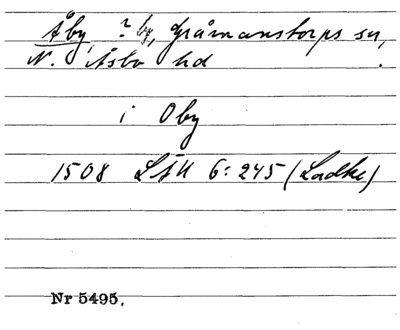 Åby, ? by, Gråmanstorps sn,
N. Åsbo hd.
i Oby
1508 LÄU 6:245 (Ladhe)
Nr 5495.